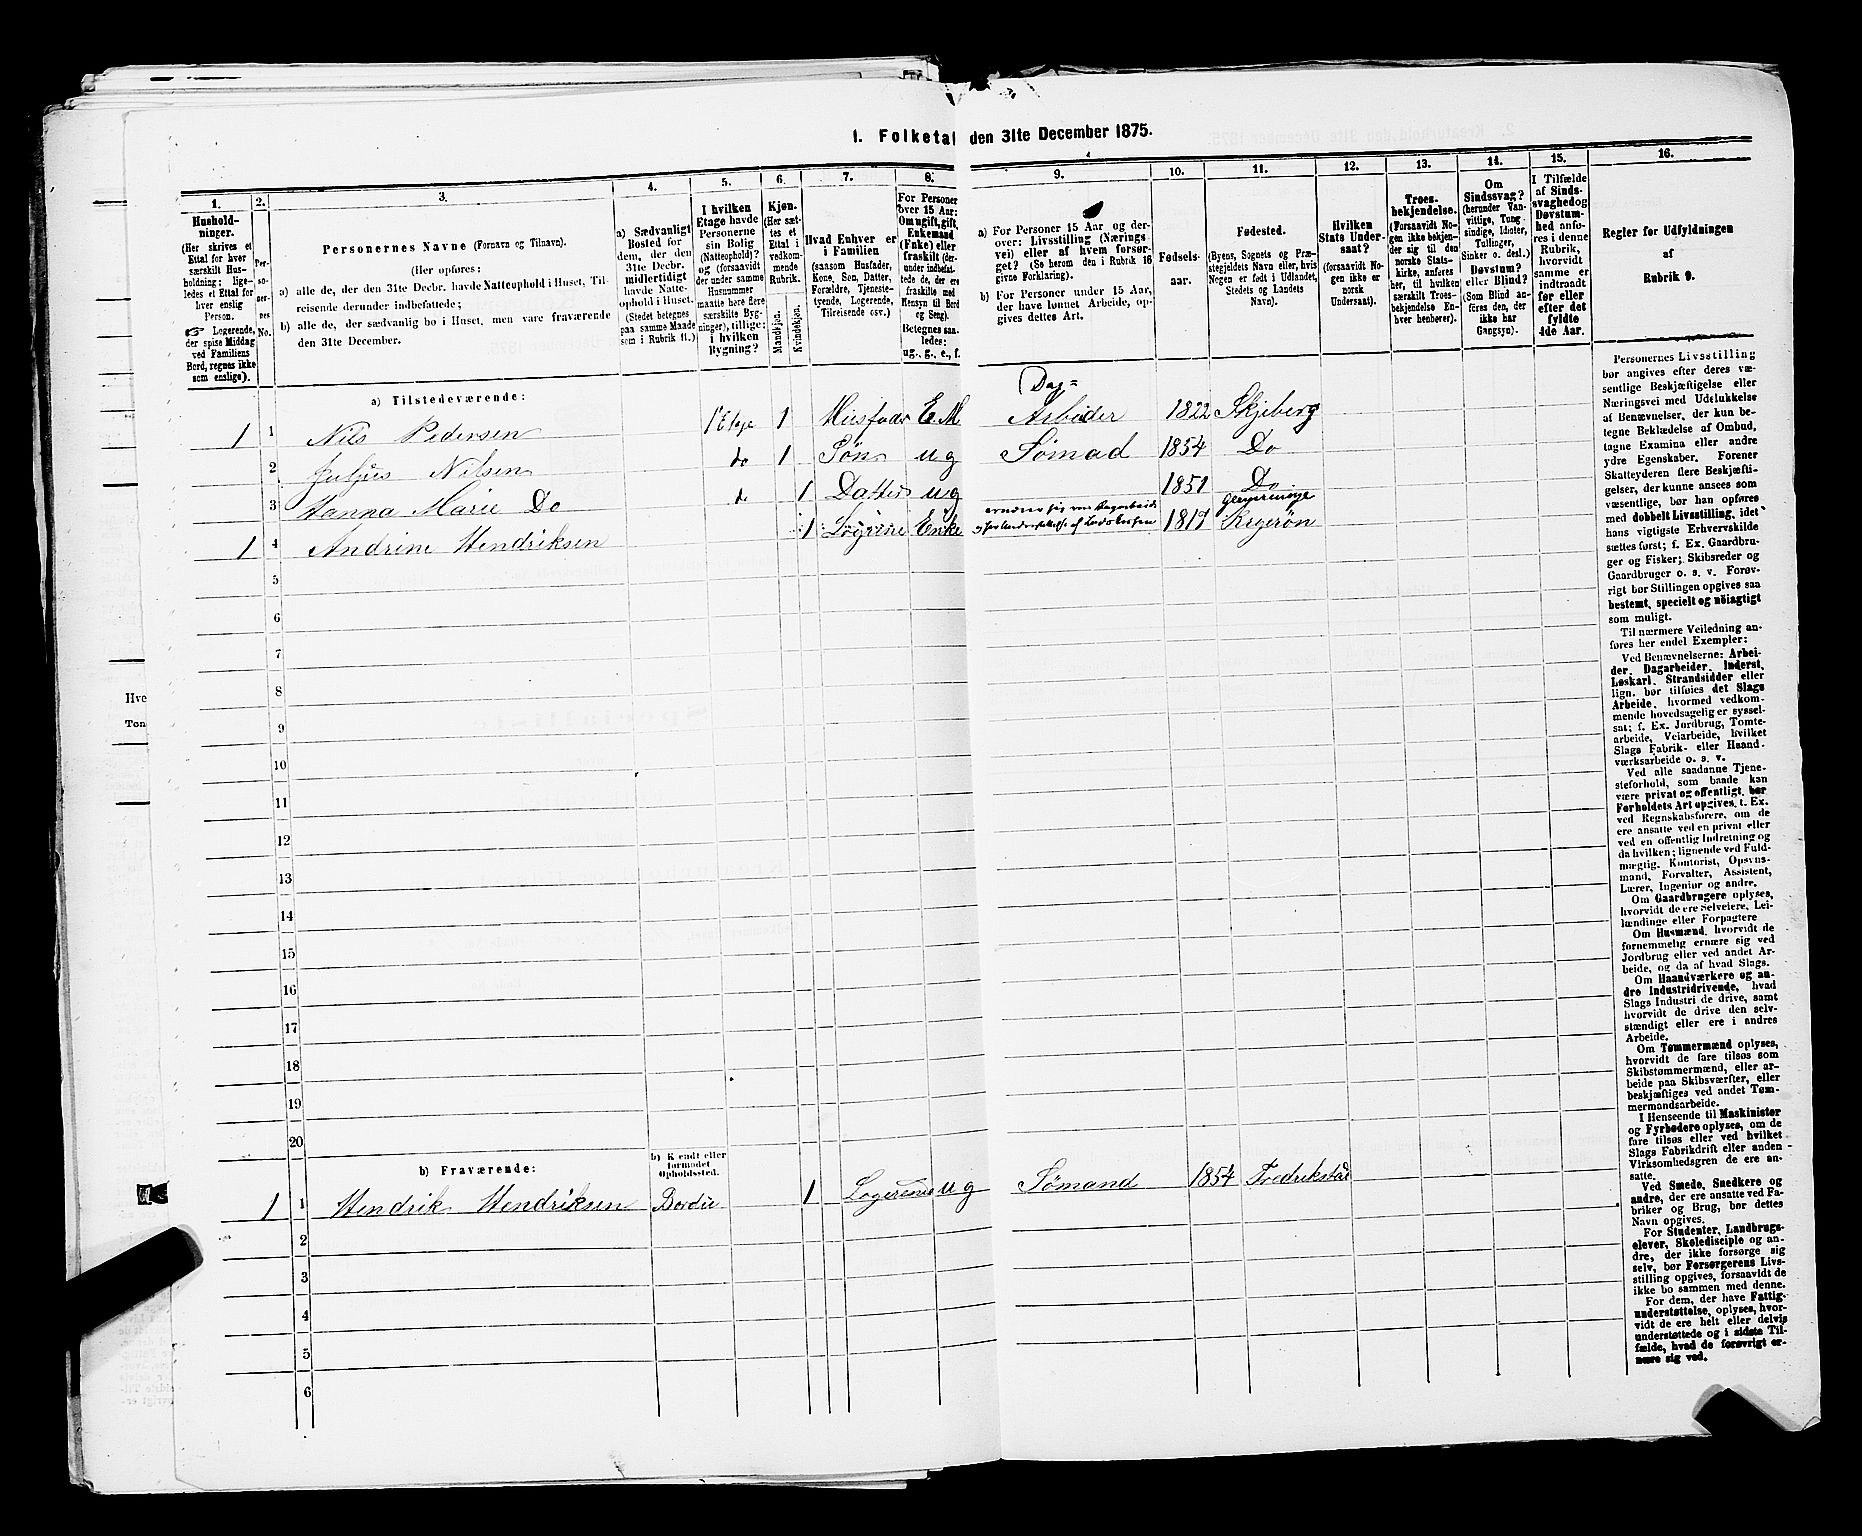 1. Folketal den 31te December 1875.
1.
2.
3.
4.
5.
6.
7.
8.
9.
10.
11.
12.
13.
14.
15.
16.
Hushold-
ninger.
(Her skrives et
Ettal for hver
særskilt Hus-
holdning; lige-
ledes et Ettal for
hver enslig
Person.
☞ Logerende,
der spise Middag
ved Familiens
Bord, regnes ikke
som enslige).
Per-
so-
ner-
nes
No.
Personernes Navne (Fornavn og Tilnavn).
(Her opføres:
a) alle de, der den 31te Decbr. havde Natteophold i Huset, Til-
reisende derunder indbefattede;
b) alle de, der sædvanlig bo i Huset, men vare fraværende
den 31te December.
a) Sædvanligt
Bosted for
dem, der den
31te Decbr.
midlertidigt
havde Natte-
ophold i Huset.
(Stedet betegnes
paa samme Maade
som i Rubrik 11.)
I hvilken
Etage havde
Personerne
sin Bolig
(Natteophold)?
og (forsaavidt
der under samme
Husnummer
maatte høre flere
særskilte Byg-
ninger), tillige:
i hvilken
Bygning?
Kjøn.
(Her sæt-
tes et
Ettal i
vedkom-
mende
Rubrik.
Mandkjøn.
Kvindekjøn.
Hvad Enhver er
i Familien
(saasom Husfader,
Kone, Søn, Datter,
Forældre, Tjeneste-
tyende, Logerende,
Tilreisende osv.)
For Personer
over 15 Aar:
Om ugift, gift,
Enkemand
(Enke) eller
fraskilt (der-
under indbefat-
tede de, der ere
fraskilte med
Hensyn til Bord
og Seng).
Betegnes saa-
ledes:
ug., g., e., f.
a) For Personer 15 Aar og der-
over: Livsstilling (Nærings-
vei) eller af hvem forsør-
get? (Se herom den i Rubrik 16
givne Forklaring).
b) For Personer under 15 Aar,
der have lønnet Arbeide, op-
gives dettes Art.
Fødsels-
aar.
Fødested.
(Byens, Sognets og Præ-
stegjeldets Navn eller, hvis
Nogen er født i Udlandet,
Stedets og Landets
Navn).
Hvilken
Stats Under-
saat?
(forsaavidt No-
gen ikke er
norsk
Undersaat).
Troes-
bekjendelse.
(Forsaavidt No-
gen ikke bekjen-
der sig til den
norske Stats-
kirke, anføres
her, til hvilken
særskilt Troes-
bekjendelse En-
hver henhører).
Om
Sindssvag?
(herunder Van-
vittige, Tung-
sindige, Idioter,
Tullinger,
Sinker o. desl.)
Døvstum?
eller Blind?
(Som Blind an-
føres den, der
ikke har
Gangsyn).
I Tilfælde
af Sinds-
svaghed og
Døvstum-
hed anfø-
res i denne
Rubrik,
hvorvidt
samme er
indtraadt
før eller
efter det
fyldte
4de Aar.
Regler for Udfyldningen
af
Rubrik 9.
a) Tilstedeværende:
1 1 Nils Pedersen 1' Etage 1 Husfader E. M. Dag= Arbeider 1822 Skjeberg
2 Juljus Nilsen do 1 Søn ug Sømad 1854 Do
3 Hanna Marie Do do 1 Datter ug 1851 Do
1 4 Andrine Hendriksen 1 Enke 1819
5
6
7
8
9
10
11
12
13
14
15
16
17
18
19
20
b) Fraværende:
b) Kjendt eller
formodet
Opholdssted.
1 1 Hendrik Hendriksen 1 Logerende ug Sømand 1854 Fredrikstad
2
3
4
5
6
Personernes Livsstilling
bør angives efter deres væ-
sentlige Beskjæftigelse eller
Næringsvei med Udelukkelse
af Benævnelser, der kun be-
tegne Beklædelse af Ombud,
tagne Examina eller andre
ydre Egenskaber. Forener
Skatteyderen flere Beskjæfti-
gelser, der kunne ansees som
væsentlige, bør han opføres
med dobbelt Livsstilling, idet
hans vigtigste Erhvervskilde
sættes først; f. Ex. Gaardbru-
ger og Fisker; Skibsreder og
Gaardbruger o. s. v. Forøv-
rigt bør Stillingen opgives saa
bestemt, specielt og nøiagtigt
som muligt.
Til nærmere Veiledning an-
føres her endel Exempler:
Ved Benævnelserne: Arbei-
der, Dagarbeider, Inderst,
Løskarl, Strandsidder eller
lign. bør tilføies det Slags
Arbeide, hvormed vedkom-
mende hovedsagelig er syssel-
sat; f. Ex. Jordbrug, Tomte-
arbeide, Veiarbeide, hvilket
Slags Fabrik- eller Haand-
værksarbeide o. s. v.
Ved alle saadanne Tjene-
steforhold, som baade kan
være privat og offentligt, bør
Forholdets Art opgives, t. Ex.
ved Regnskabsførere, om de
ere ansatte ved en privat eller
ved en offentlig Indretning og
da hvilken; lignende ved Fuld-
mægtig, Kontorist, Opsyns-
mand, Forvalter, Assistent,
Lærer, Ingeniør og andre.
Om Gaardbrugere oplyses,
hvorvidt de ere Selveiere, Lei-
lændinge eller Forpagtere
Om Husmænd, hvorvidt de
fornemmelig ernære sig ved
Jordbrug eller ved andet Ar-
beide, og da af hvad Slags.
Om Haandværkere og an-
dre Industridrivende, hvad
Slags Industri de drive, samt
hvorvidt de drive den selv-
stændigt eller ere i andres
Arbeide.
Om Tømmermænd oplyses,
hvorvidt de fare tilsøs som
Skibstømmermænd, eller ar-
beide paa Skibsværfter, eller
beskjæftiges ved andet Tøm-
mermandsarbeide.
I Henseende til Maskinister
og Fyrbødere oplyses, om de
fare tilsøs eller ved hvilket
Slags Fabrikdrift eller anden
Virksomhedsgren de ere an-
satte.
Ved Smede, Snedkere og
andre, der ere ansatte ved Fa-
briker og Brug, bør dettes
Navn opgives.
For Studenter, Landbrugs-
elever, Skoledisciple og an-
dre, der ikke forsørge sig
selv, bør Forsørgerens Livs-
stilling opgives, forsaavidt de
ikke bo sammen med denne.
For dem, der have Fattig-
understøttelse, oplyses, hvor-
vidt de ere helt eller delvis
understøttede og i sidste Til-
fælde, hvad de forøvrigt er-
nære sig ved.